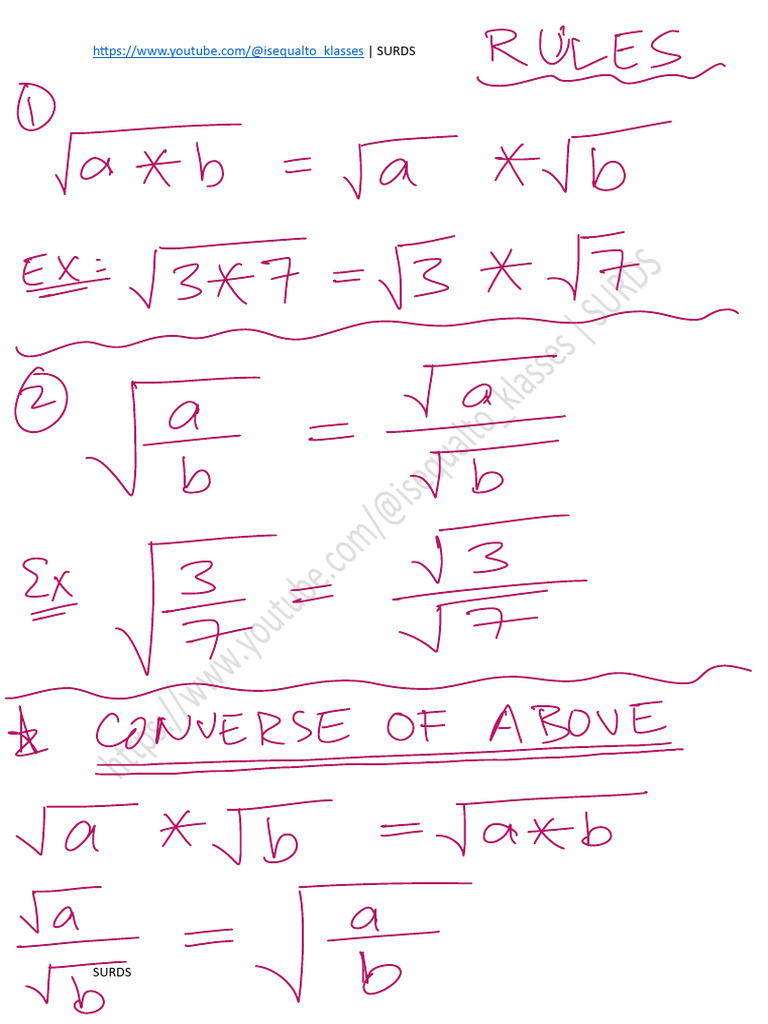 https://www.youtube.com/@isequalto_klasses | SURDS
RULES
①
√(a * b) = √a * √b
EX: √(3*7) = √3 * √7
②
√(a/b) = √a/√b
Ex √(3/7) = √3/√7
* CONVERSE OF ABOVE
√a * √b = √(a*b)
√a/√b = √(a/b)
SURDS
https://www.youtube.com/@isequalto_klasses | SURDS